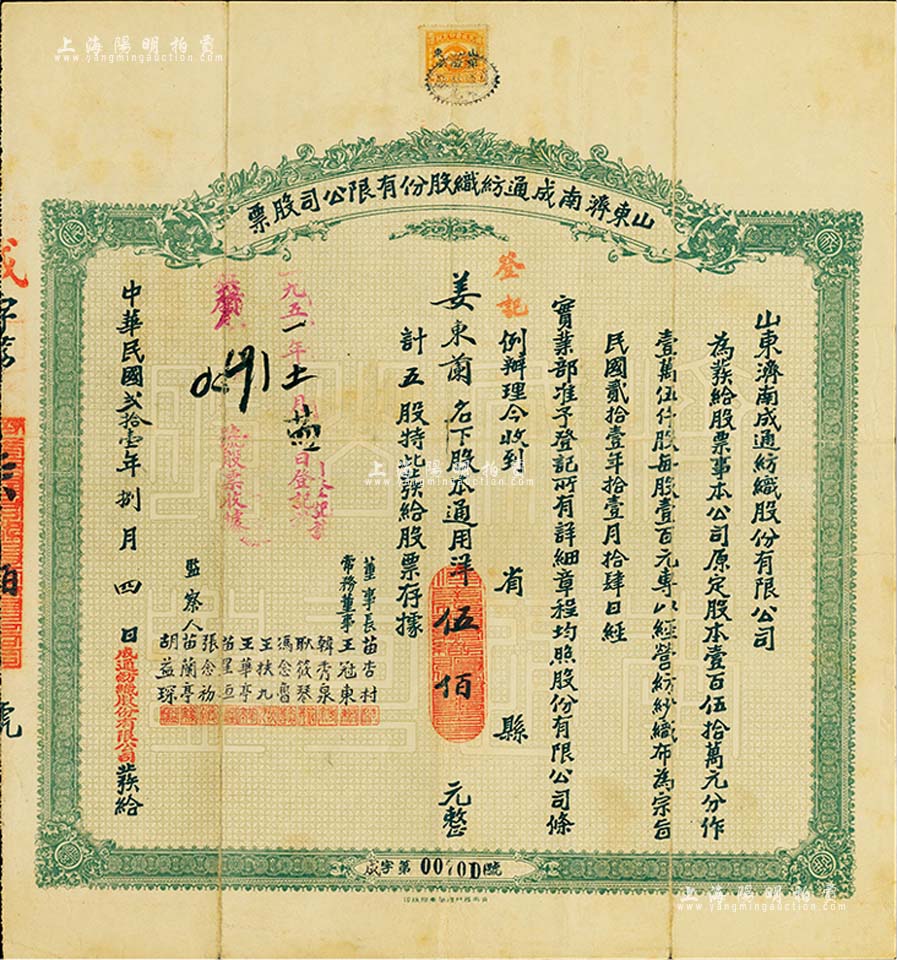 上海陽明拍賣
www.yangmingauction.com
山東濟南成通紡織股份有限公司股票
山東濟南成通紡織股份有限公司
為蔟給股票事本公司原定股本壹百伍拾萬元分作
壹萬伍仟股每股壹百元專以經營紡紗織布為宗旨
民國貳拾壹年拾壹月拾肆日經
實業部准予登記所有詳細章程均照股份有限公司條
例辦理今收到 省 縣
登記
姜東蘭名下股本通用洋伍佰元整
計五股持此蔟給股票存據
董事長 苗杏村
常務董事 王冠東
韓秀泉
耿筱琴
馮念魯
王扶九
王華亭
苗星垣
張念初
監察人 苗蘭亭
胡益琛
一九五一年十一月 日登記
換股票收據
中華民國貳拾壹年捌月四日成通紡織股份有限公司蔟給
咸字第 0070D 號
上海陽明拍賣
www.yangmingauction.com
上海陽明拍賣
www.yangmingauction.com